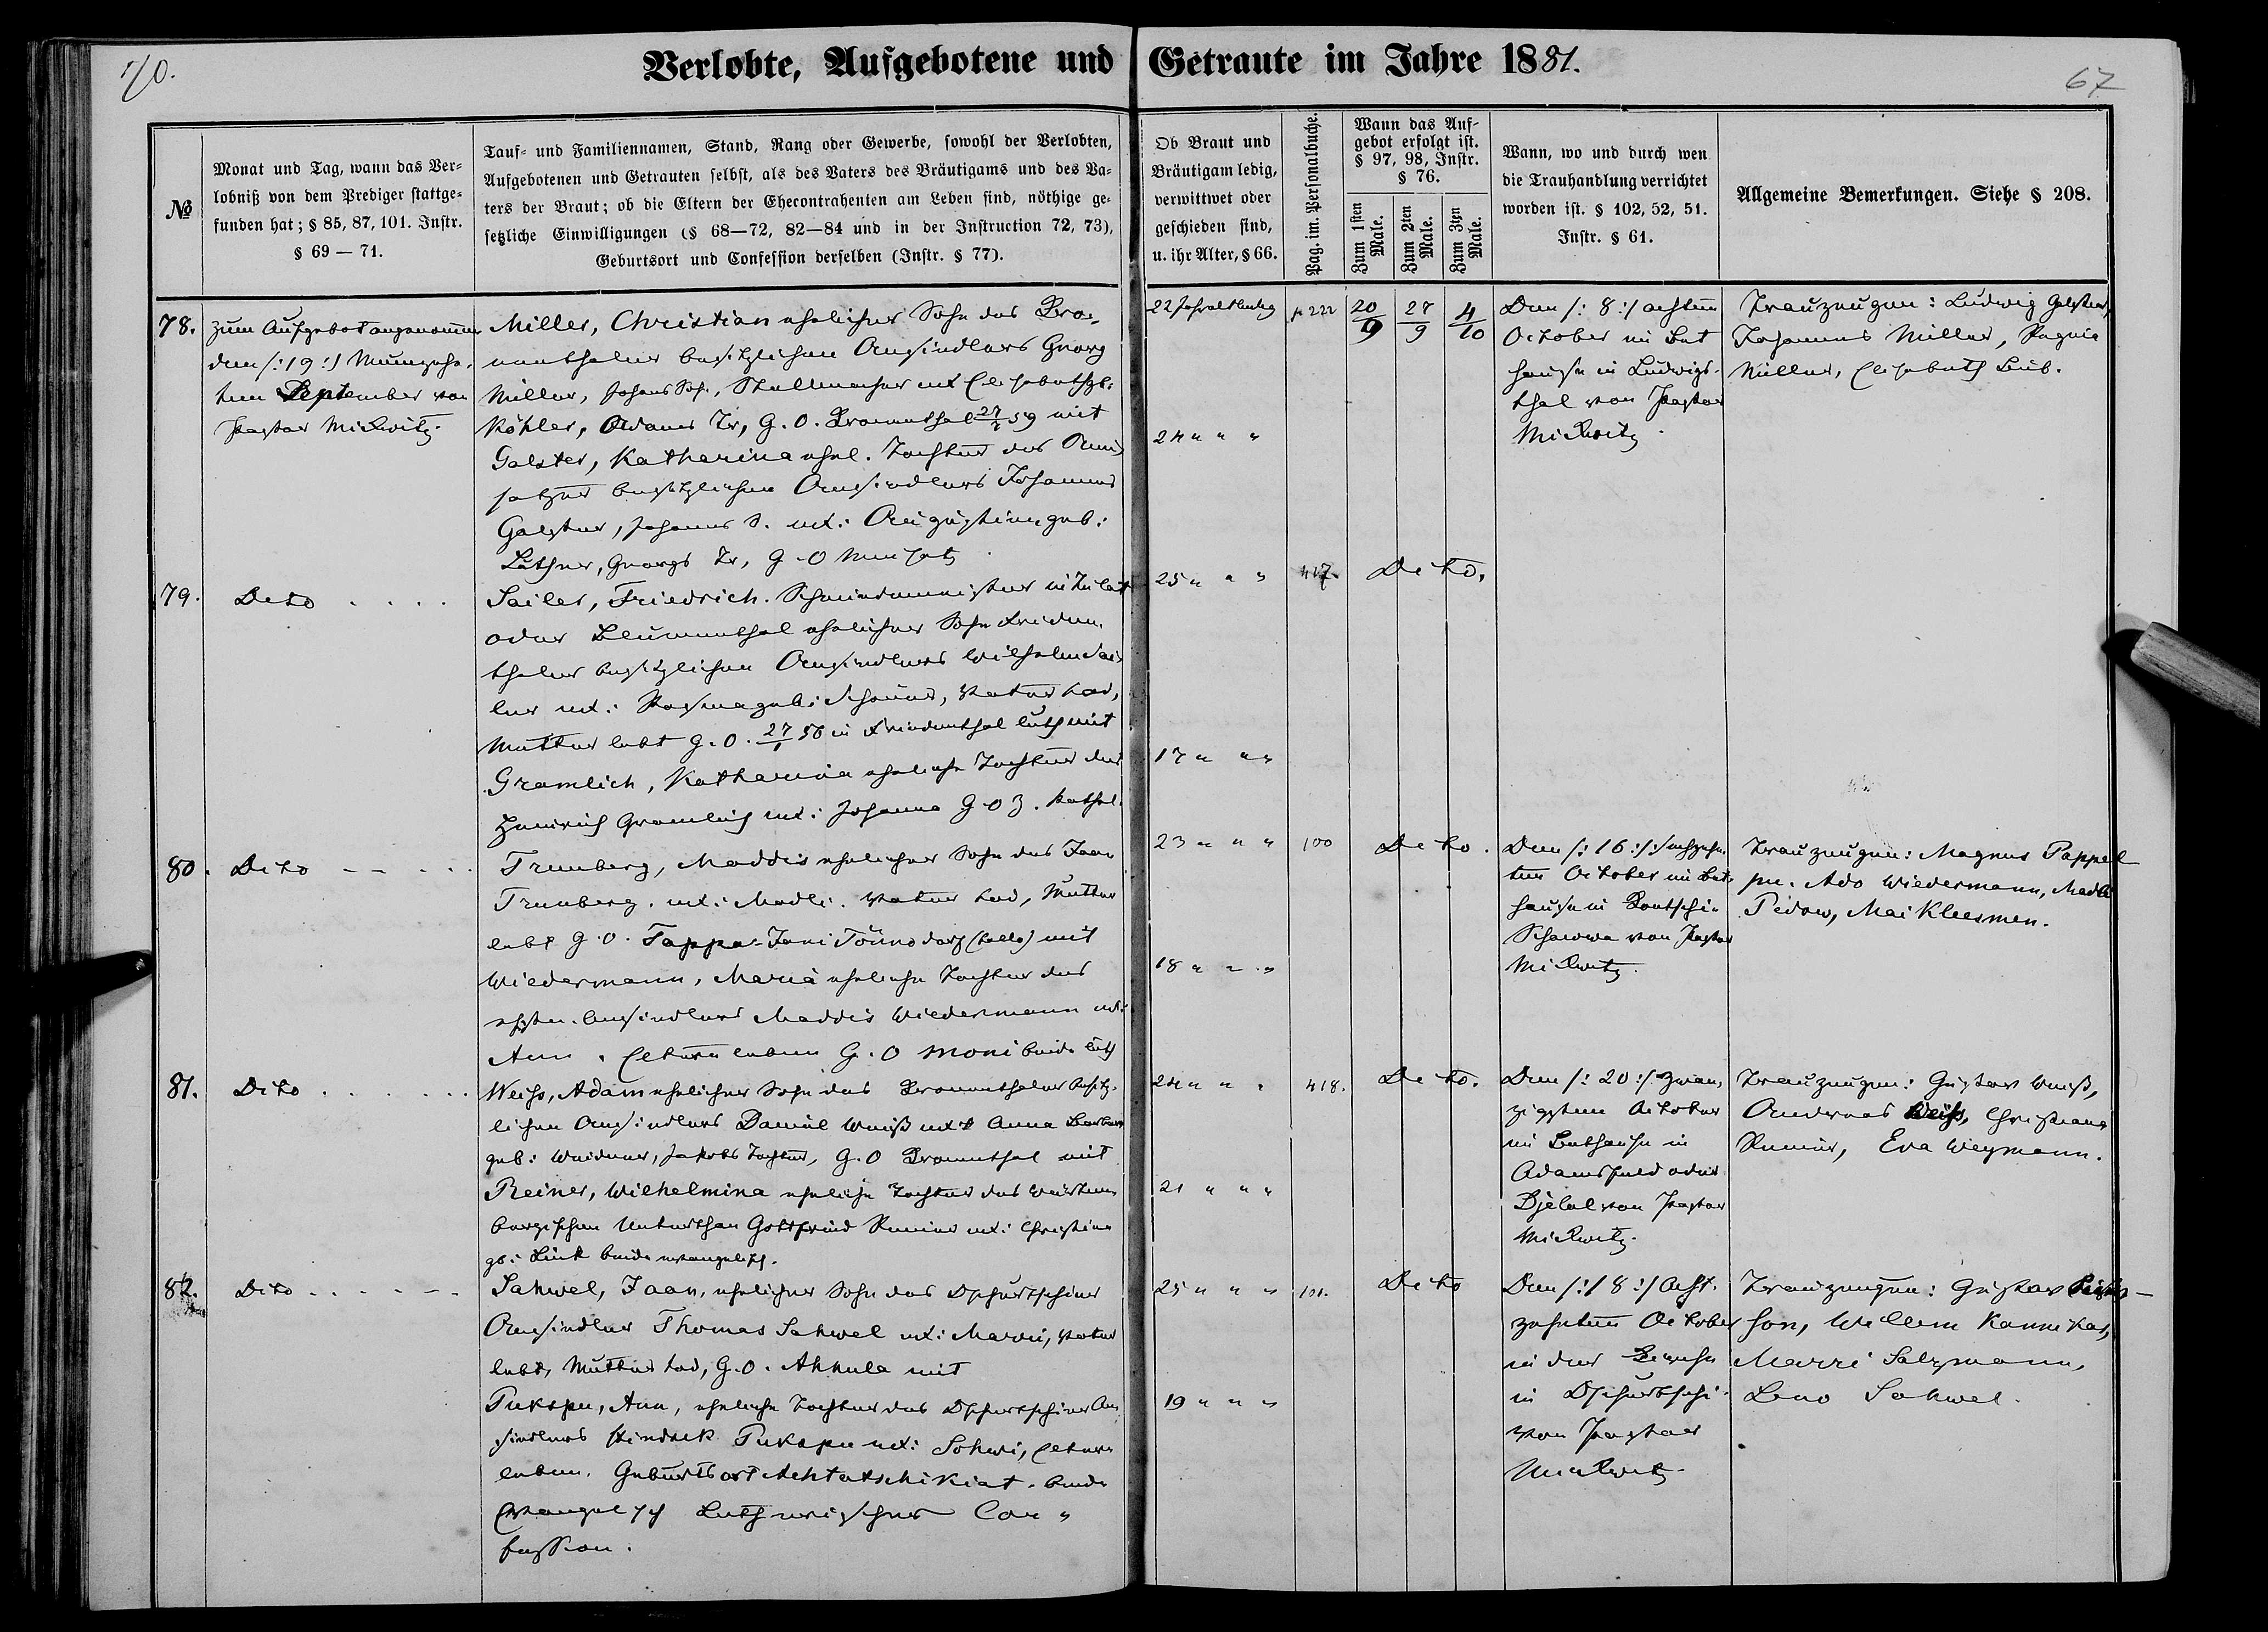 70.
Verlobte, Aufgebotene und Getraute im Jahre 1881.
67
№
Monat und Tag, wann das Ver-
lobniß von dem Prediger stattge-
funden hat; § 85, 87, 101. Instr.
§ 69 — 71.
Tauf- und Familiennamen, Stand, Rang oder Gewerbe, sowohl der Verlobten,
Aufgebotenen und Getrauten selbst, als des Vaters des Bräutigams und des Va-
ters der Braut; ob die Eltern der Ehecontrahenten am Leben sind, nöthige ge-
setzliche Einwilligungen (§ 68—72, 82—84 und in der Instruction 72, 73),
Geburtsort und Confession derselben (Instr. § 77).
Ob Braut und
Bräutigam ledig,
verwittwet oder
geschieden sind,
u. ihr Alter, § 66.
Pag. im. Personalbuche.
Wann das Auf-
gebot erfolgt ist.
§ 97, 98, Instr.
§ 76.
Zum 1sten
Male.
Zum 2ten
Male.
Zum 3ten
Male.
Wann, wo und durch wen
die Trauhandlung verrichtet
worden ist. § 102, 52, 51.
Instr. § 61.
Allgemeine Bemerkungen. Siehe § 208.
78.
zum Aufgebot angenommen
den /: 19 :/ Neunzehn-
ten September von
Pastor Mickwitz.
Miller, Christian ehelicher Sohn des Kro-
nenthaler besitzlichen Ansiedlers Georg
Miller, Johans Sohn, Stellmacher ux Elisabeth gb:
Köhler, Adams Tr, G. O. Kronenthal 59 mit
Galster, Katharina ehel. Tochter des Neu-
satzer besitzlichen Ansiedlers Johannes
Galster, Johanns S. ux: Augustine geb:
Georgs Tr, G. O Neusatz
22 Jahr alt ledig
24 " " "
p 222
20/9
27/9
4/10
Den /: 8 :/ achten
October im Bet
hause in Ludwigs-
thal von Pastor
Mickwitz.
Trauzeugen: Ludwig Galster,
Johannes Miller,
Miller, Elisabeth
79.
Deto . . . .
Sailer, Friedrich. Schmiedemeister in
oder Blumenthal ehelicher Sohn Frieden-
thaler besitzlichen Ansiedlers Wilhelm Sai-
ler ux: Rosina geb: Vater tod,
Mutter lebt G. O. 27/1 56 in Friedenthal luth mit
Gramlich, Katharina eheliche Tochter des
Heinrich Gramlich ux: Johanna G O Z. kathol.
25 " " "
17 " " "
417.
Deto.
80.
Dito - - . . .
Trumberg, Maddis ehelicher Sohn des Jaan
Trumberg. ux: Madli. Vater tod, Mutter
lebt G. O. Tappa-Jani Tönno dorf mit
Wiedermann, Maria eheliche Tochter des
Ansiedlers Maddis Wiedermann ux:
Ann. Eltern leben G. O Moni beide luth
23 " " "
18 " " "
100
Deto.
Den /: 16 :/ sechzehn-
ten October im Bet-
hause in Kontschi-
Schawwa von Pastor
Mickwitz.
Trauzeugen: Magnus Pappel
pu. Ado Wiedermann, Madli
Pedow, Mai Kleesmen.
81.
Dito . . . . . . .
Weiss, Adam ehelicher Sohn des Kronenthaler besitz-
lichen Ansiedlers Daniel Weiß ux: Anna Barbara
geb: Weidner, Jakobs Tochter, G. O Kronenthal mit
Reiner, Wilhelmina eheliche Tochter des Würtem-
bergischen Unterthan Gottfried Reiner ux: Christina
gb: Link beide evangelisch.
24 " " "
21 " " "
418.
Deto.
Den /: 20 :/ zwan-
zigsten October
im Bethause in
Adamsfeld oder
Djelal von Pastor
Mickwitz.
Trauzeugen: Gustav Weiß,
Andreas Weiss, Christiana
Reiner, Eva Weymann.
82.
Dito . . . . . .
Sahwel, Jaan, ehelicher Sohn des Dschurtschier
Ansiedler Thomas Sahwel ux: Marri, Vater
lebt, Mutter tod, G. O. Ahhula mit
Pukspu, Ann, eheliche Tochter des Dschurtschier An-
siedlers Hindrek Pukspu ux: Sohwi, Eltern
leben. Geburtsort Achtatschikiat. beide
Evangelisch Lutherischer Con-
fession.
25 " " "
19 " " "
101.
Deto
Den /: 18 :/ Acht-
zehnten October
in der
in Dschurtschi
von Pastor
Mickwitz.
Trauzeugen: Gustav
son, Willem Kannikas,
Marri Salzmann,
Leno Sahwel.